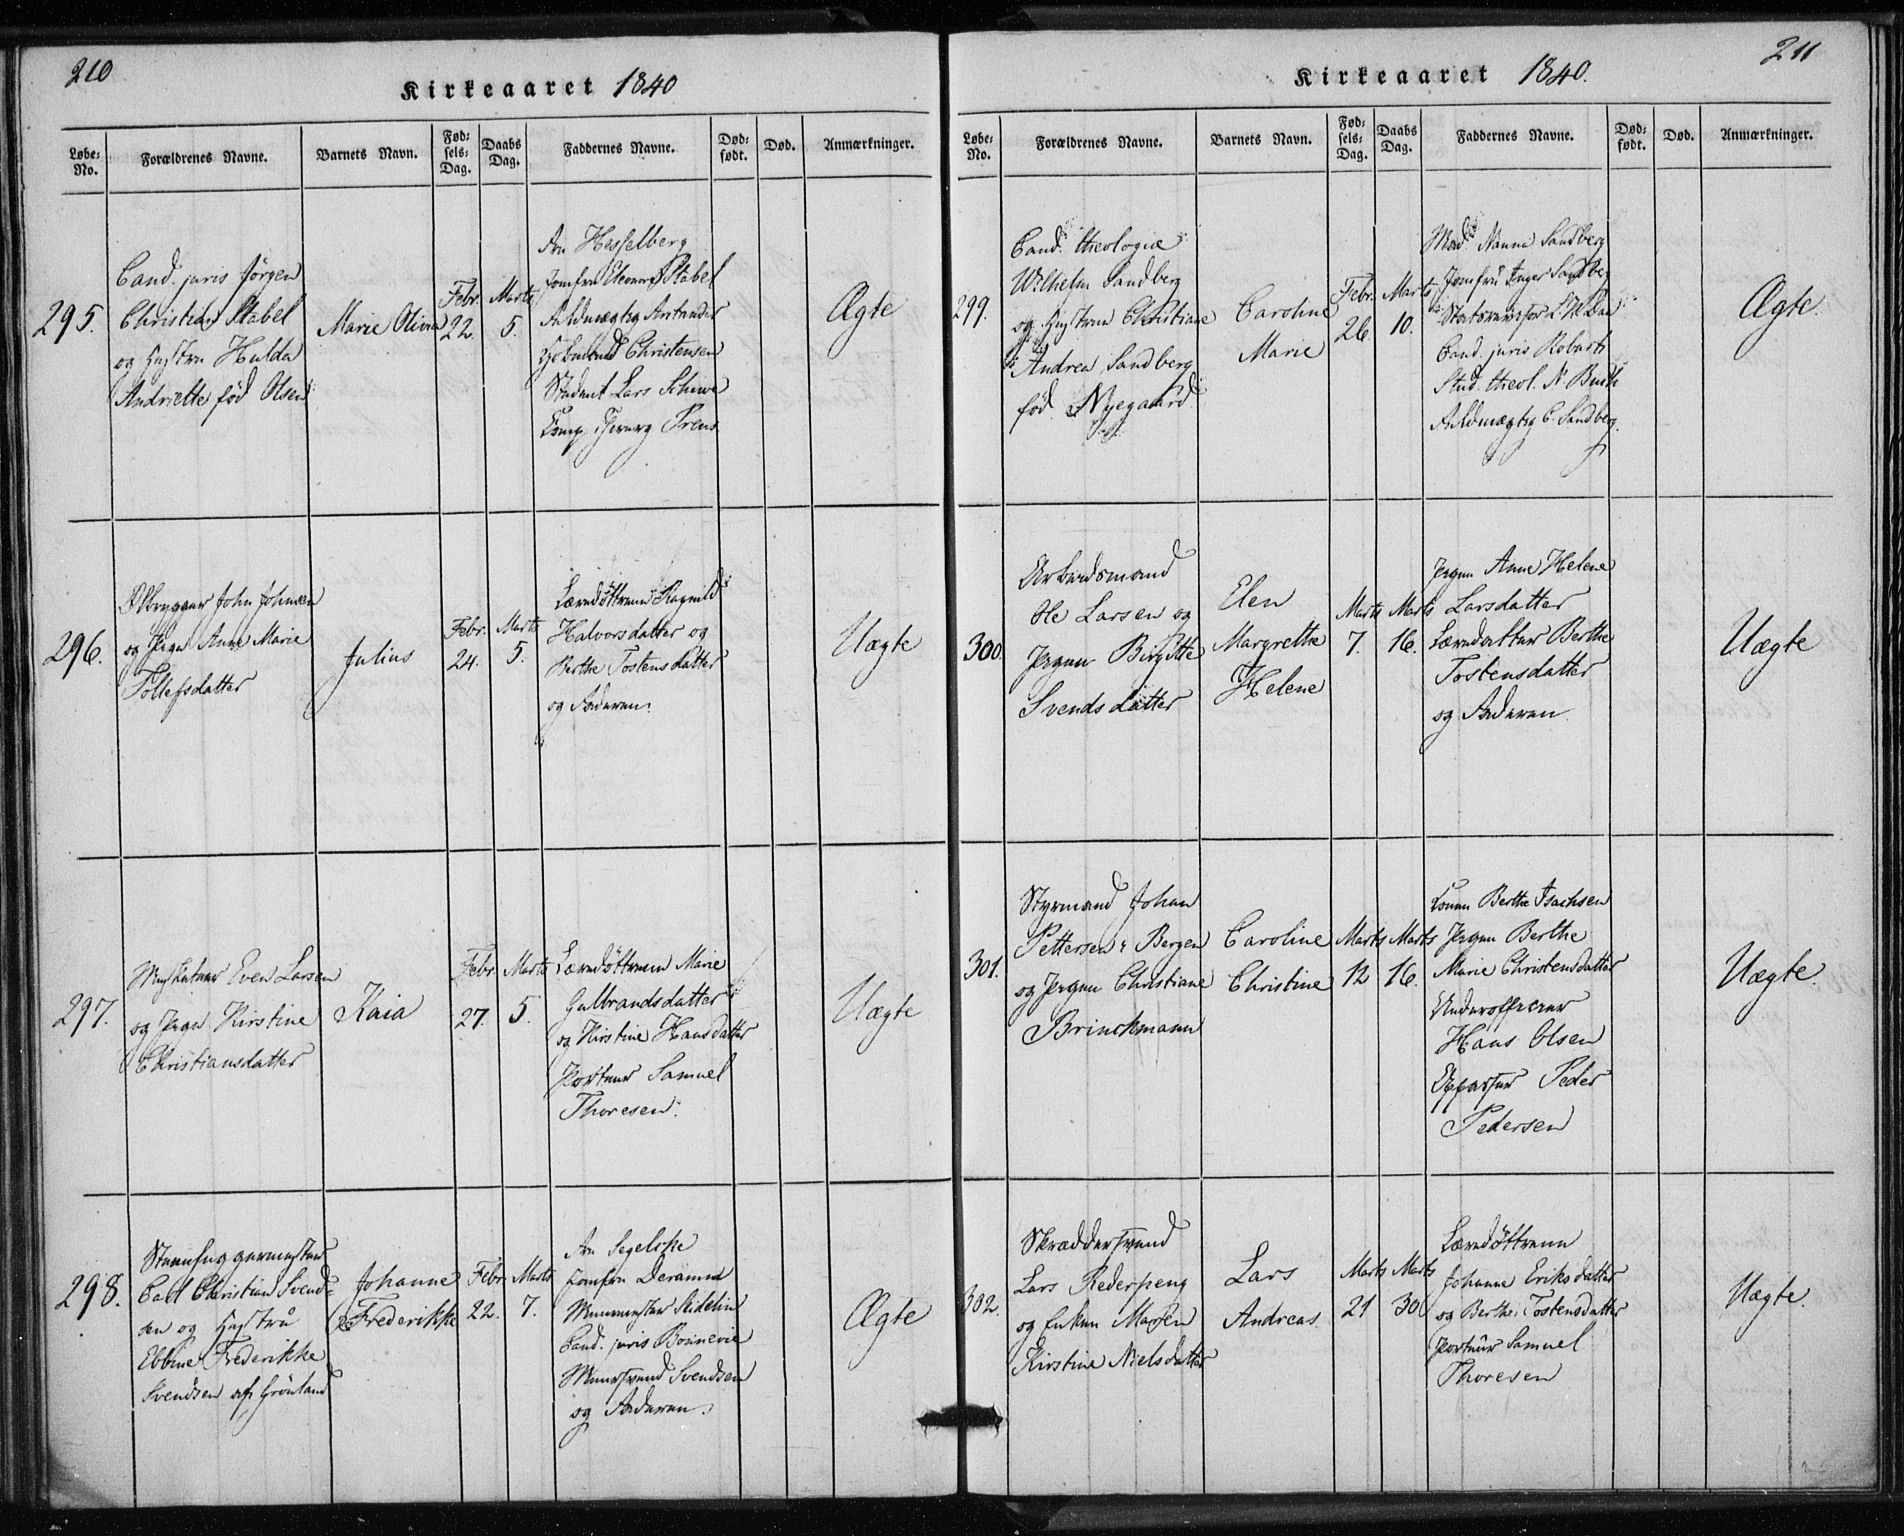 210
Kirkeaaret 1840
Løbe-No.
Forældrenes Navne.
Barnets Navn.
Fødsels-Dag.
Daabs Dag.
Faddernes Navne.
Dødfødt.
Død.
Anmærkninger.
295.
Cand. juris Jørgen
Christian Stabel
og Hustru Hulda
Andriette fød Olsen
Marie Olivia
Febr. 22.
Marts 5.
Fru Hesselberg
Jomfru Eleonora Stabel
Christensen
Student Lars
Ægte
296.
Ølbrygger John Johnsen
og Pigen Anne Marie
Tollefsdatter
Julius
Febr. 24.
Marts 5.
Læredøttrene Ragnild
Halvorsdatter og
Berthe Tostensdatter
og Faderen.
Uægte
297.
Musketeer Even Larsen
og Pigen Kirstine
Christiansdatter
Kaia
Febr. 27.
Marts 5.
Læredøttrene Marie
Gulbrandsdatter
og Kirstine Hansdatter
Porteur Samuel
Thoresen.
Uægte
298.
Steenhuggermester
Carl Christian Svend-
sen og Hustru
Ebbine Frederikke
Svendsen af Grønland
Johanne
Frederikke
Febr. 22.
Marts 7.
Fru Segelcke
Jomfru
Muurmester
Cand. juris Bonnevie
Muursvend Svendsen
og Faderen.
Ægte
211
Kirkeaaret 1840.
Løbe-No.
Forældrenes Navne.
Barnets Navn.
Fødsels-Dag.
Daabs Dag.
Faddernes Navne.
Dødfødt.
Død.
Anmærkninger.
299.
Cand. theologiæ
Wilhelm Sandberg
og Hustrue Christiane
Andrea Sandberg
fød Nyegaard
Caroline
Marie
Febr. 26.
Marts 10.
Mad. Nanna Sandberg
Jomfru Inger Sandberg
Statsrevisor
Cand. juris Robarth
Stud. theol. N.
Fuldmægtig C. Sandberg.
Ægte.
300.
Arbeidsmand
Ole Larsen og
Pigen Birgitte
Svendsdatter
Elen
Margrethe
Helene
Marts 7.
Marts 16.
Pigen Anne Helene
Larsdatter
Læredatter Berthe
Tostensdatter
og Faderen
Uægte
301.
Styrmand Johan
Pettersen i Bergen
og Pigen Christiane
Brinckmann
Caroline
Christine
Marts 12
Marts 16.
Konen Berthe Isachsen
Pigen Berthe
Marie Christensdatter
Underofficeer
Hans Olsen
Oppasser Peder
Pedersen
Uægte.
302.
Skræddersvend
Lars Rederpeng
og Enken Maren
Kirstine Nielsdatter
Lars
Andreas.
Marts 21
Marts 30
Læredøttrene
Johanne Eriksdatter
og Berthe Tostensdatter
Porteur Samuel
Thoresen
Uægte.